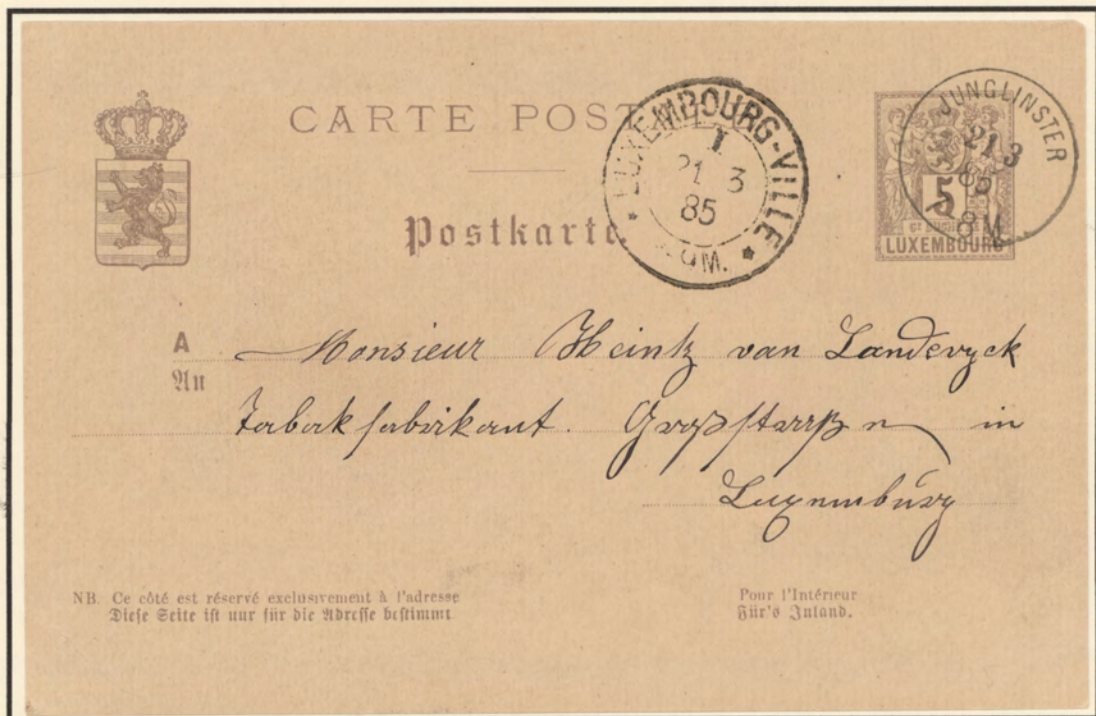 CARTE POST
Postkarte
LUXEMBOURG-VILLE
1
21 3
85
JUNGLINSTER
21 3
85
8 M
5
GD DUCHÉ DE
LUXEMBOURG
A Monsieur Heintz van Landewyck
An
Tabakfabrikant. Großstraße in
Luxemburg
NB. Ce côté est réservé exclusivement à l'adresse
Diese Seite ist nur für die Adresse bestimmt
Pour l'Intérieur
Für's Inland.